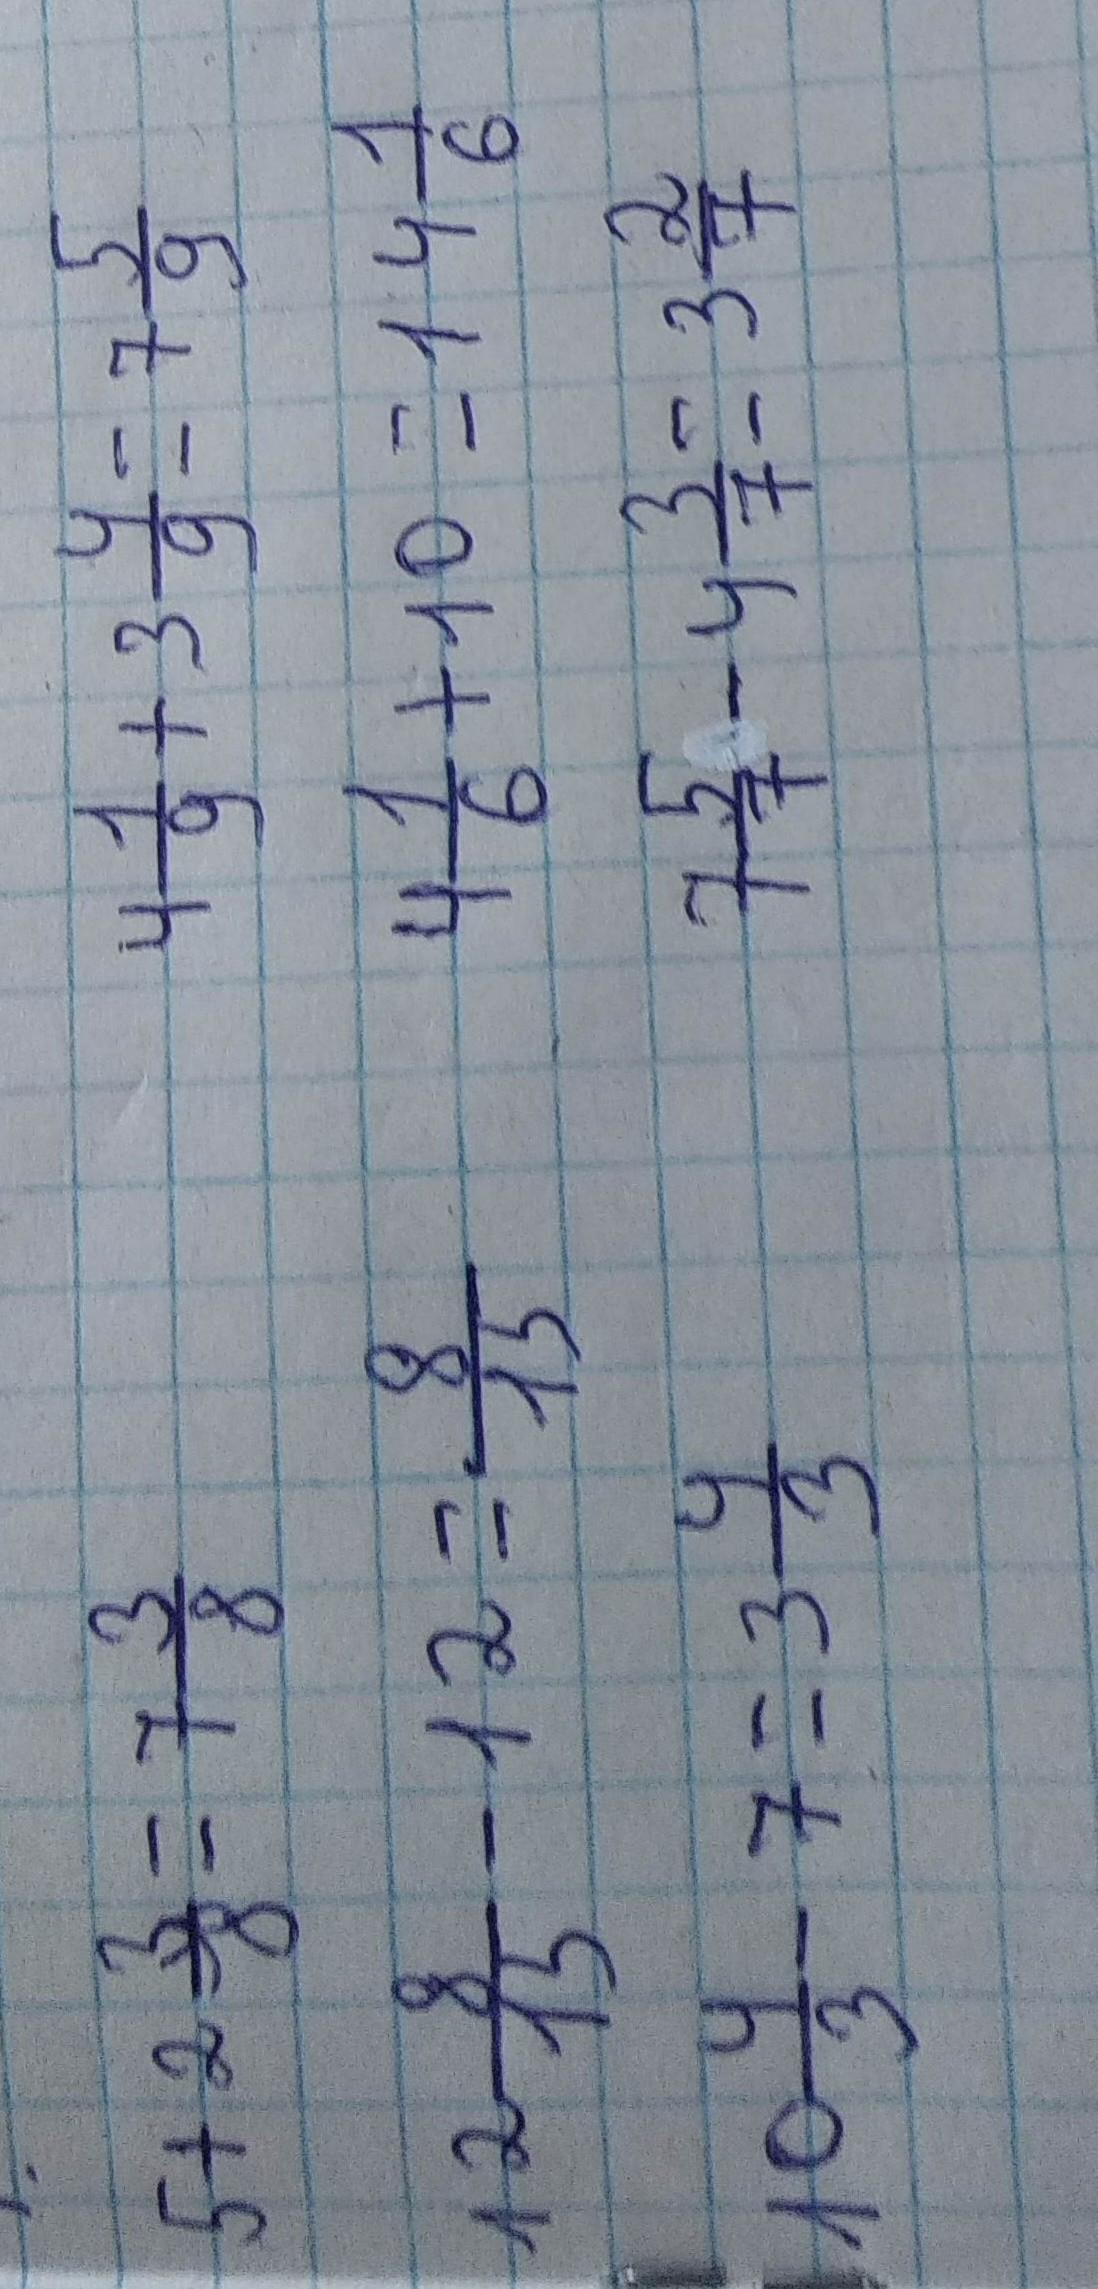 5 + 2 3/8 = 7 3/8    4 1/9 + 3 4/9 = 7 5/9
12 8/15 - 12 = 8/15    4 1/6 + 10 = 14 1/6
10 4/3 - 7 = 3 4/3    7 5/7 - 4 3/7 = 3 2/7